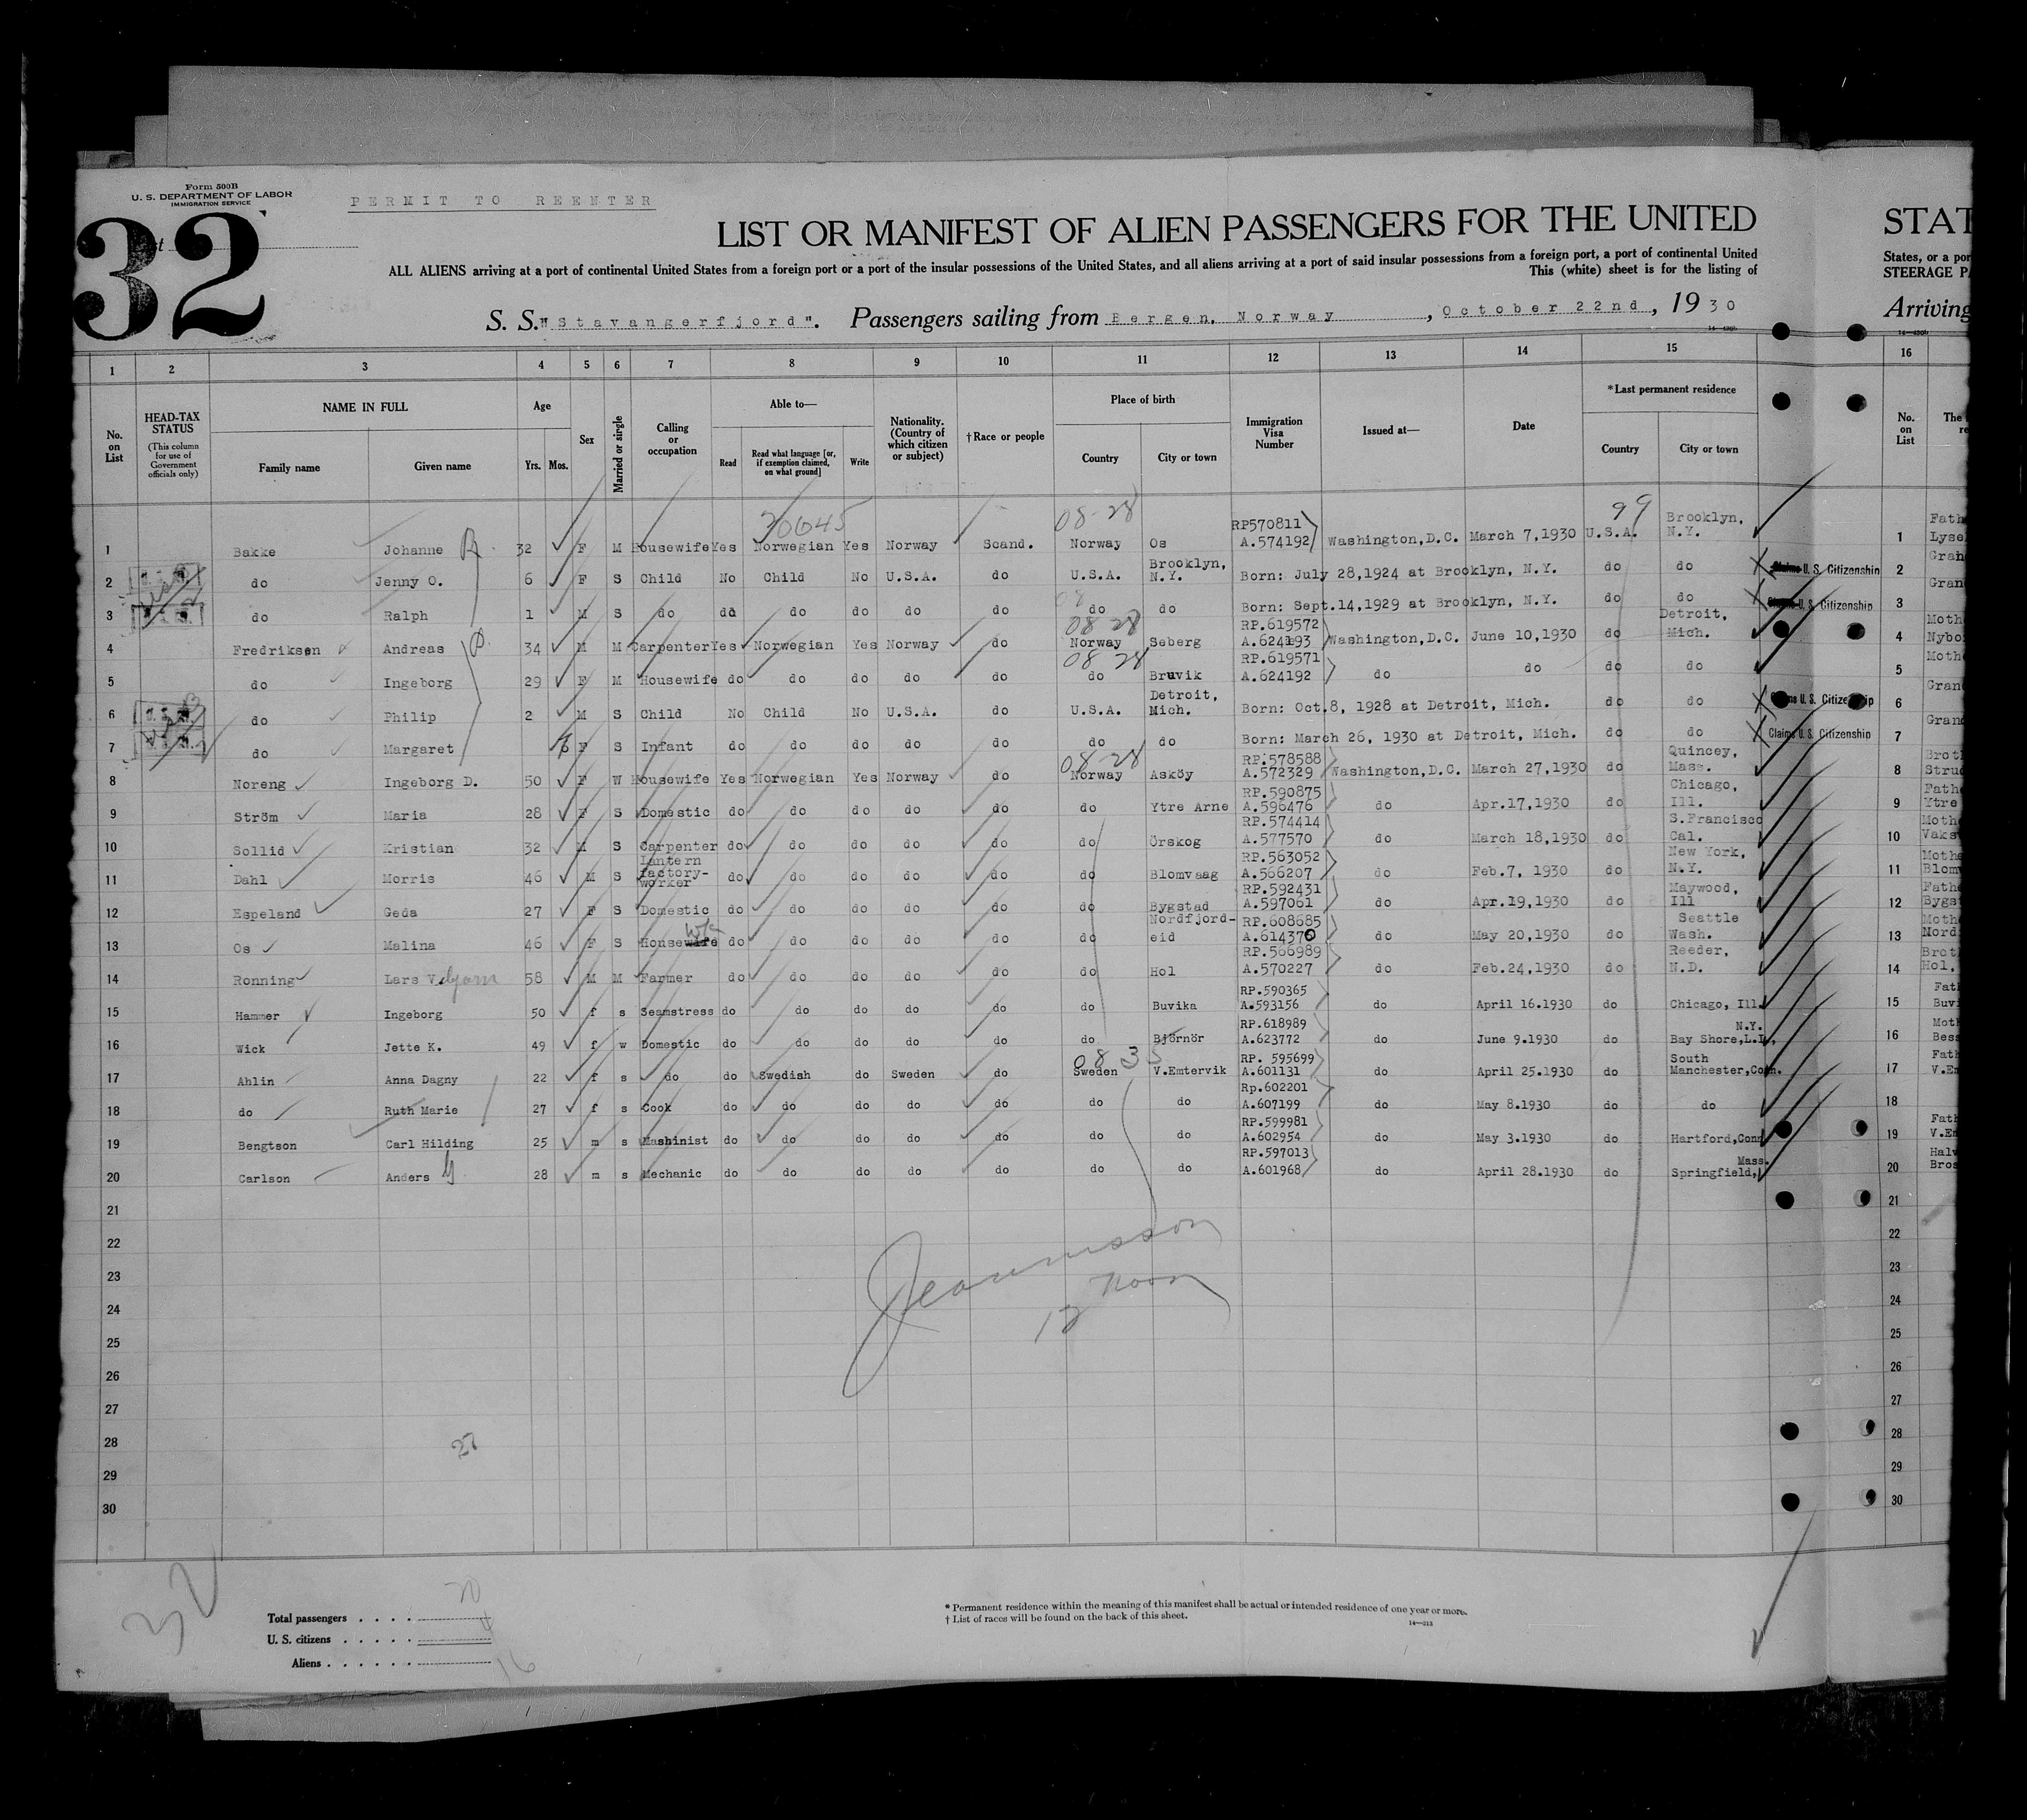 Form 500B
U. S. DEPARTMENT OF LABOR
IMMIGRATION SERVICE
PERMIT TO REENTER
32
LIST OR MANIFEST OF ALIEN PASSENGERS FOR THE UNITED
STAT
ALL ALIENS arriving at a port of continental United States from a foreign port or a port of the insular possessions of the United States, and all aliens arriving at a port of said insular possessions from a foreign port, a port of continental United
States, or a por
This (white) sheet is for the listing of
STEERAGE PA
S. S. "Stavangerfjord". Passengers sailing from Bergen, Norway, October 22nd, 1930
Arriving
1 2 3 4 5 6 7 8 9 10 11 12 13 14 15 16
No. on List
HEAD-TAX STATUS
(This column for use of Government officials only)
NAME IN FULL
Family name Given name
Age
Yrs. Mos.
Sex
Married or single
Calling or occupation
Able to—
Read Read what language [or, if exemption claimed, on what ground] Write
Nationality. (Country of which citizen or subject)
†Race or people
Place of birth
Country City or town
Immigration Visa Number
Issued at—
Date
*Last permanent residence
Country City or town
No. on List
The
re
08-28 99
1 Bakke Johanne 32 F M Housewife Yes Norwegian Yes Norway Scand. Norway Os RP570811 A.574192 Washington,D.C. March 7,1930 U.S.A. Brooklyn, N.Y. 1 Fath Lyse
2 do Jenny O. 6 F S Child No Child No U.S.A. do U.S.A. Brooklyn, N.Y. Born: July 28,1924 at Brooklyn, N.Y. do do Claims U. S. Citizenship 2 Gran
3 do Ralph 1 M S do do do do do do do do Born: Sept.14,1929 at Brooklyn, N.Y. do do Claims U. S. Citizenship 3 Gran
08 28
4 Fredriksen Andreas 34 M M Carpenter Yes Norwegian Yes Norway do Norway Seberg RP.619572 A.624193 Washington,D.C. June 10,1930 do Detroit, Mich. 4 Moth Nybo
08 28
5 do Ingeborg 29 F M Housewife do do do do do do Bruvik RP.619571 A.624192 do do do do 5 Moth
6 do Philip 2 M S Child No Child No U.S.A. do U.S.A. Detroit, Mich. Born: Oct.8, 1928 at Detroit, Mich. do do Claims U.S. Citizenship 6 Gran
7 do Margaret F S Infant do do do do do do do Born: March 26, 1930 at Detroit, Mich. do do Claims U.S. Citizenship 7 Gran
08-28
8 Noreng Ingeborg D. 50 F W Housewife Yes Norwegian Yes Norway do Norway Asköy RP.578588 A.572329 Washington,D.C. March 27,1930 do Quincey, Mass. 8 Brot Stru
9 Ström Maria 28 F S Domestic do do do do do do Ytre Arne RP.590875 A.596476 do Apr.17,1930 do Chicago, Ill. 9 Fath Ytre
10 Sollid Kristian 32 M S Carpenter do do do do do do Örskog RP.574414 A.577570 do March 18,1930 do S.Francisco Cal. 10 Moth Vaks
11 Dahl Morris 46 M S Lantern factory-worker do do do do do do Blomvaag RP.563052 A.566207 do Feb.7, 1930 do New York, N.Y. 11 Moth Blom
12 Espeland Geda 27 F S Domestic do do do do do do Bygstad RP.592431 A.597061 do Apr.19,1930 do Maywood, Ill 12 Fath Bygs
13 Os Malina 46 F S Housewife do do do do do do Nordfjord-eid RP.608685 A.614370 do May 20,1930 do Seattle Wash. 13 Moth Nord
14 Ronning Lars V. 58 M M Farmer do do do do do do Hol RP.566989 A.570227 do Feb.24,1930 do Reeder, N.D. 14 Brot Hol,
15 Hammer Ingeborg 50 f s Seamstress do do do do do do Buvika RP.590365 A.593156 do April 16.1930 do Chicago, Ill. 15 Fath Buvi
16 Wick Jette K. 49 f w Domestic do do do do do do Björnör RP.618989 A.623772 do June 9.1930 do N.Y. Bay Shore,L.I., 16 Moth Bess
08 3
17 Ahlin Anna Dagny 22 f s do do Swedish do Sweden do Sweden V.Emtervik RP. 595699 A.601131 do April 25.1930 do South Manchester,Conn. 17 Fath V.Em
18 do Ruth Marie 27 f s Cook do do do do do do do Rp.602201 A.607199 do May 8.1930 do do 18
19 Bengtson Carl Hilding 25 m s Mashinist do do do do do do do RP.599981 A.602954 do May 3.1930 do Hartford,Conn 19 Fath V.Em
20 Carlson Anders G 28 m s Mechanic do do do do do do do RP.597013 A.601968 do April 28.1930 do Mass. Springfield, 20 Halv Bros
21 21
22 22
23 23
24 12 noon 24
25 25
26 26
27 27
28 27 28
29 29
30 30
32
Total passengers . . . . 20
U. S. citizens . . . . . 4
Aliens . . . . . . 16
* Permanent residence within the meaning of this manifest shall be actual or intended residence of one year or more.
† List of races will be found on the back of this sheet.
14—213